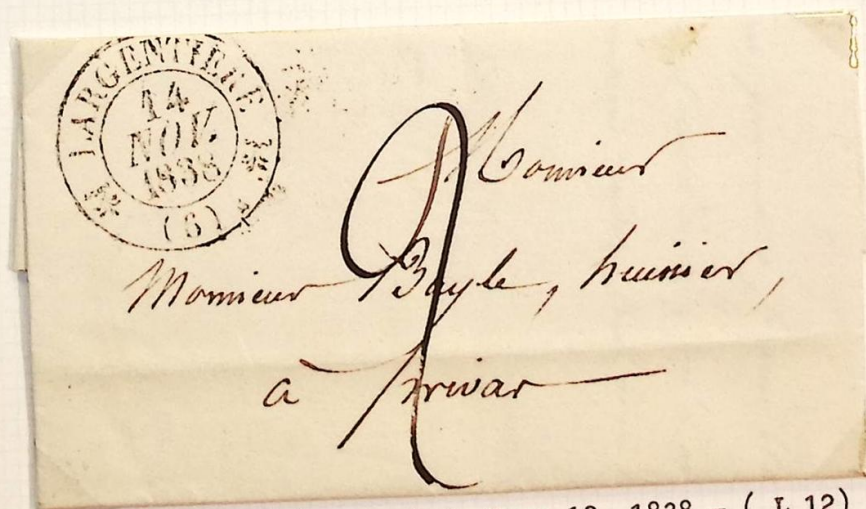 LARGENTIÈRE
14
NOV.
1838
(6)
2
Monsieur
Monsieur Bayle, huissier,
à Privas
1838 - ( L 12)